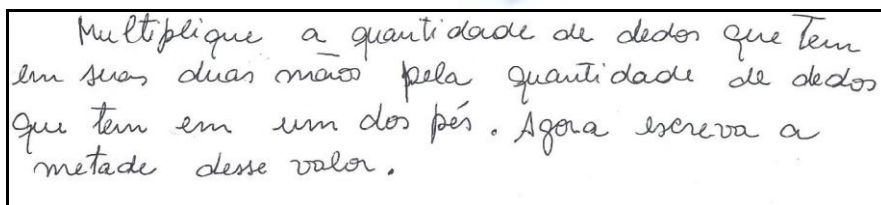 Multiplique a quantidade de dedos que tem
em suas duas mãos pela quantidade de dedos
que tem em um dos pés. Agora escreva a
metade desse valor.